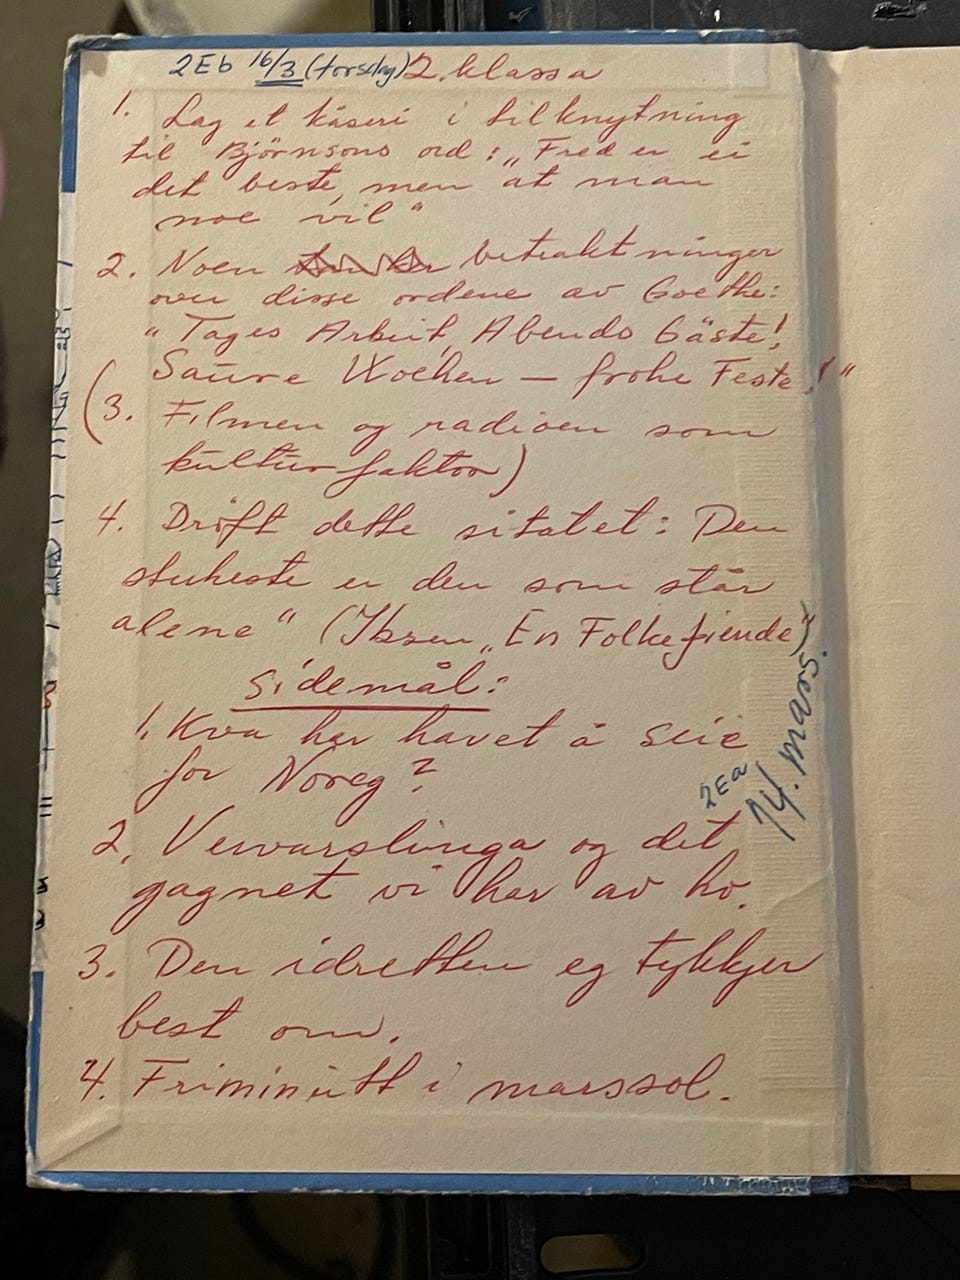 2Eb 16/3 (torsdag) 2. klassa
1. Lag et kåseri i tilknytning
til Bjørnsons ord: „Fred er ei
det beste, men at man
noe vil“
2. Noen betraktninger
over disse ordene av Goethe:
„Tages Arbeit, Abends Gäste!
Saure Wochen — frohe Feste!“
(3. Filmen og radioen som
kulturfaktor)
4. Drøft dette sitatet: Den
sterkeste er den som står
alene“ (Ibsen „En Folkefiende“
Sidemål:
1. Kva har havet å seie
for Noreg?
2Ea 14. mars.
2. Vervarslinga og det
gagnet vi har av ho.
3. Den idretten eg tykkjer
best om.
4. Friminutt i marssol.